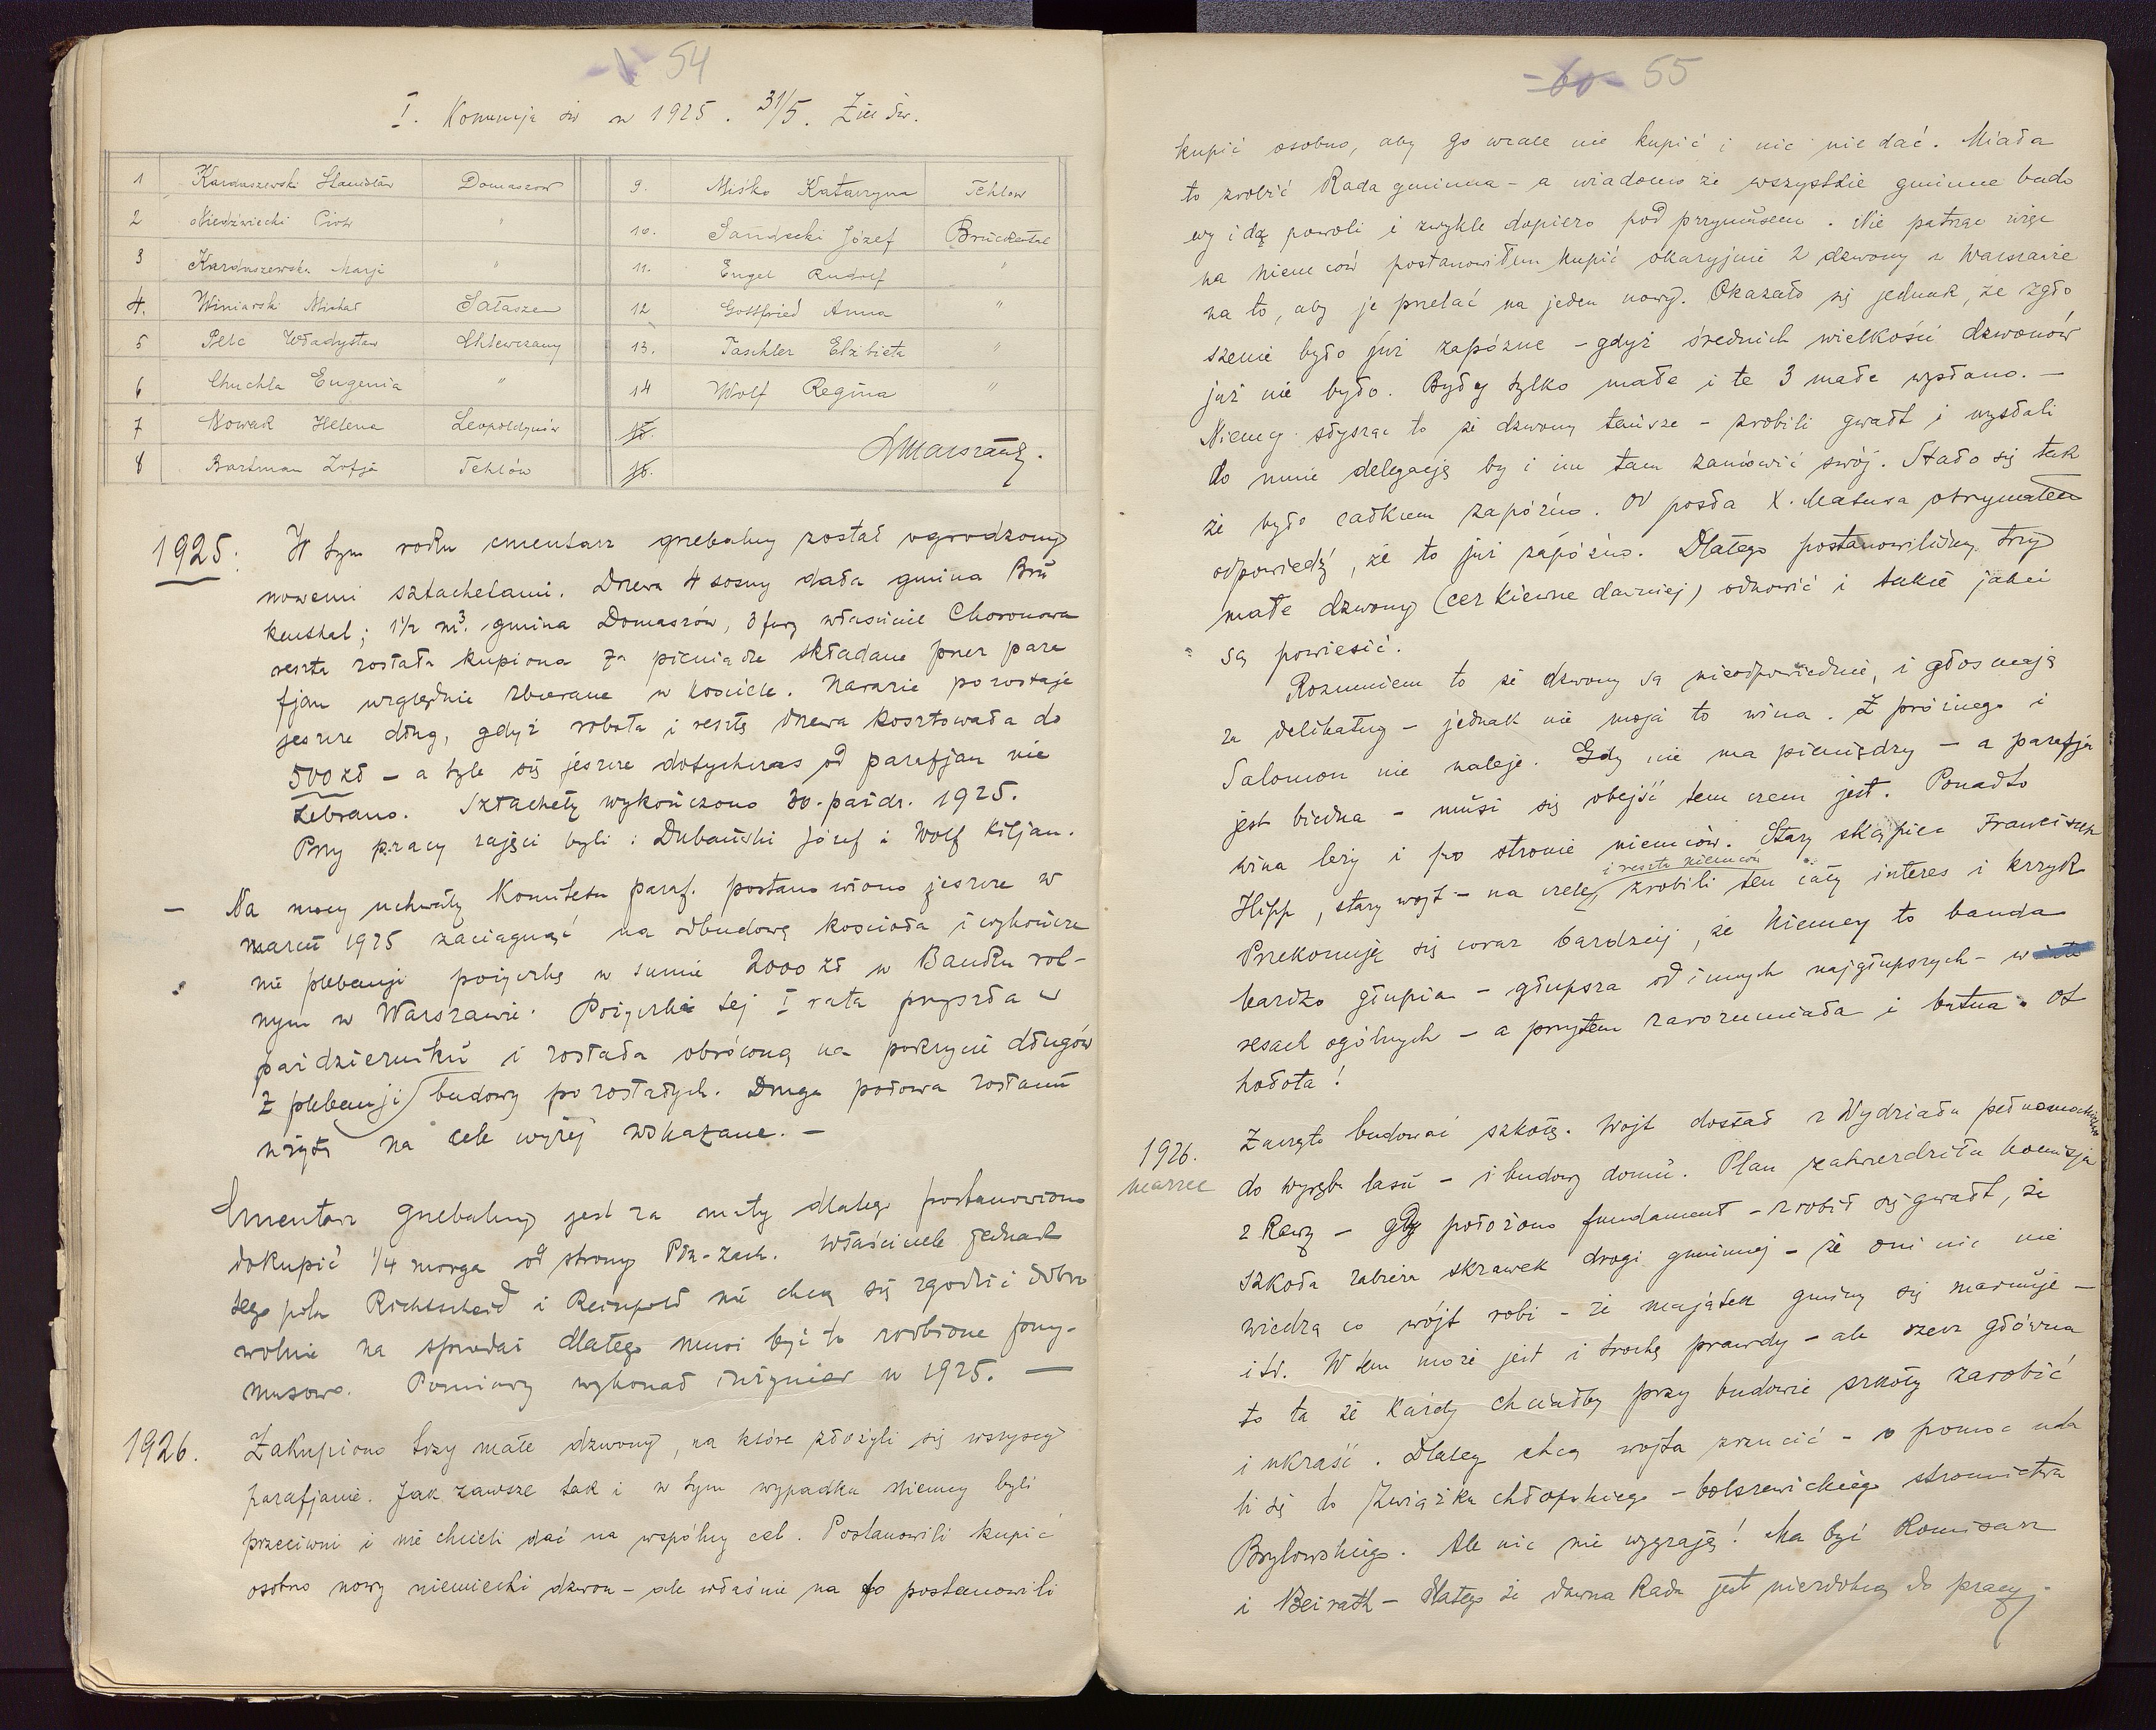 54
I. Komunija św w 1925. 31/5. Ziel Św.
1 Kardaszewski Stanisław Domaszów
2 Niedźwiecki Piotr "
3 Kardaszewska Marja "
4. Winiarski Michał Sałasze
5 Pelc Władysław Chlewczany
6 Chuchla Eugenia "
7 Nowak Helena Leopoldynów
8 Bartman Zofja Tehlów
9. Miśko Katarzyna Tehlow
10. Sandecki Józef Brückental
11. Engel Rudolf "
12 Gottfried Anna "
13. Taschler Elżbieta "
14 Wolf Regina "
15.
16.
1925. W tym roku cmentarz grzebalny został ogrodzony
nowemi sztachetami. Drzewa 4 sosny dała gmina Brü
kenthal; 1½ m³. gmina Domaszów, 3 fury właściciel Choronowa
reszta została kupiona za pieniądze składane przez para
fjan względnie zbierane w kościele. Narazie pozostaje
jeszcze dług, gdyż robota i resztę drzewa kosztowała do
500 zł – a tyle się jeszcze dotychczas od parafjan nie
zebrano. Sztachety wykończono 30. paźdr. 1925.
Przy pracy zajęci byli: Dubański Józef i Wolf Kiljan.
– Na mocy uchwały Komitetu paraf. postanowiono jeszcze w
marcu 1925 zaciągnąć na odbudowę kościoła i wykończe
nie plebanji pożyczkę w sumie 2000 zł w Banku rol-
nym w Warszawie. Pożyczki tej I rata przyszła w
październiku i została obróconą na pokrycie długów
z plebanji budowy pozostałych. Druga połowa zostanie
użytą na cele wyżej wskazane. –
Cmentarz grzebalny jest za mały dlatego postanowiono
dokupić 1/4 morga od strony Płn-zach. Właściciele jednak
tego pola Richtscheid i Reinpold nie chcą się zgodzić dobro
wolnie na sprzedaż dlatego musi być to zrobione przy-
musowo. Pomiary wykonał inżynier w 1925. –
1926. Zakupiono trzy małe dzwony, na które złożyli się wszyscy
parafjanie. Jak zawsze tak i w tym wypadku Niemcy byli
przeciwni i nie chcieli dać na wspólny cel. Postanowili kupić
osobno nowy niemiecki dzwon – ale właśnie na to postanowili
55
kupić osobno, aby go wcale nie kupić i nic nie dać. Miała
to zrobić Rada gminna – a wiadomo że wszystkie gminne budo
wy idą powoli i zwykle dopiero pod przymusem. Nie patrząc więc
na niemców postanowiłem kupić okazyjnie 2 dzwony z Warszawie
na to, aby je przelać na jeden nowy. Okazało się jednak, że zgło
szenie było już zapóźne – gdyż średnich wielkości dzwonów
już nie było. Były tylko małe i te 3 małe wysłano. –
Niemcy słysząc to że dzwony tańsze – zrobili gwałt i wysłali
do mnie delegację by i im tam zamówić swój. Stało się tak
że było całkiem zapóźno. Od posła X. Matusa otrzymałem
odpowiedź, że to już zapóźno. Dlatego postanowiliśmy trzy
małe dzwony (cerkiewne dawniej) odnowić i takie jakie
są powiesić.
Rozumiem to że dzwony są nieodpowiednie, i głos mają
za delikatny – jednak nie moja to wina. Z próżnego i
Salomon nie naleje. Gdy nie ma pieniędzy – a parafja
jest biedna – musi się obejść tem czem jest. Ponadto
wina leży i po stronie niemców. Stary skąpiec Franciszek
Hipp, stary wójt – na czele, i reszta niemców zrobili ten cały interes i krzyk
Przekonuję się coraz bardziej, że Niemcy to banda
bardzo głupia – głupsza od innych najgłupszych – w inte
resach ogólnych – a przytem zarozumiała i butna. Ot
hołota!
1926. marzec Zaczęto budować szkołę. Wójt dostał z Wydziału pełnomocnictwo
do wyrębu lasu – i budowy domu. Plan zatwierdziła komisja
z Rawy – gdy położono fundament – zrobił się gwałt, że
szkoła zabiera skrawek drogi gminnej – że oni nic nie
wiedzą co wójt robi – że majątek gminy się marnuje –
itd. W tem może jest i trochę prawdy – ale rzecz główna
to ta że każdy chciałby przy budowie szkoły zarobić
i ukraść. Dlatego chcą wójta zrzucić – o pomoc uda
li się do Związku chłopskiego – bolszewickiego stronnictwa
Brylowskiego. Ale nic nie wygrają! Ma być Komisarz
i Beirath – dlatego że dawna Rada jest niezdolną do pracy.